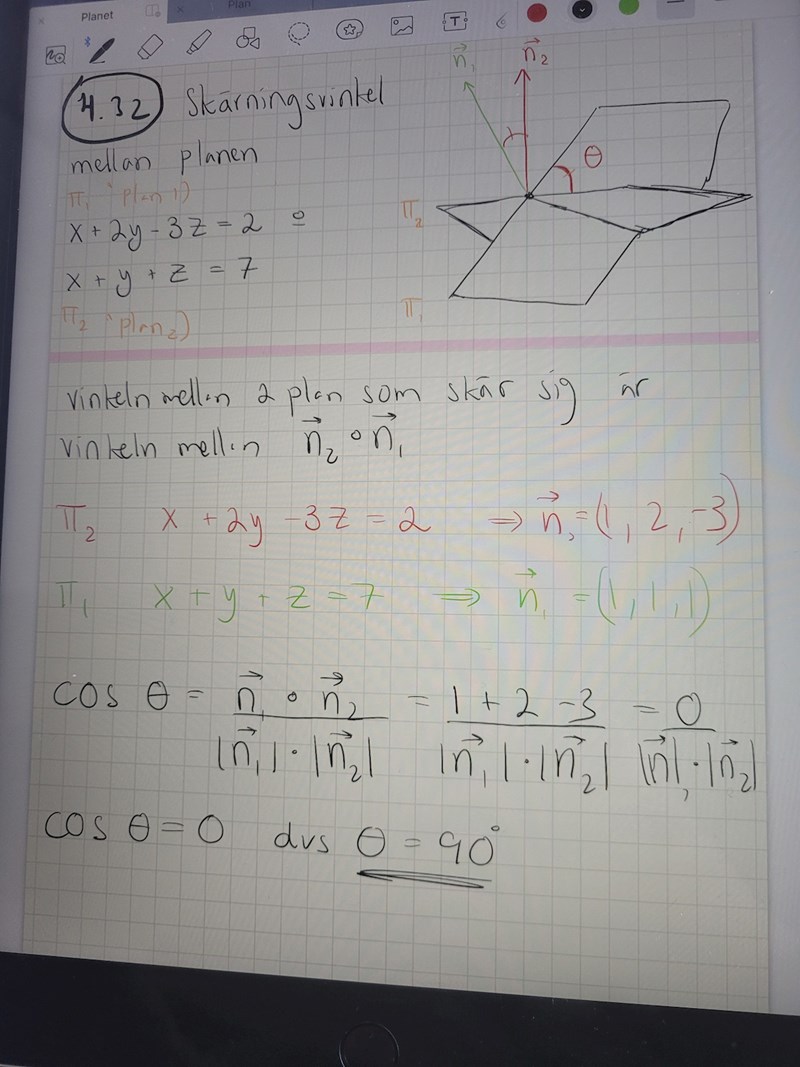 Planet
Plan
4.32 Skärningsvinkel
mellan planen
π₁ "plan 1)
x + 2y - 3z = 2 o
x + y + z = 7
π₂ "plan 2)
n⃗₁ n⃗₂
θ
π₂
π₁
vinkeln mellan 2 plan som skär sig är
vinkeln mellan n⃗₂ o n⃗₁
π₂ x + 2y - 3z = 2 ⇒ n⃗₂ = (1, 2, -3)
π₁ x + y + z = 7 ⇒ n⃗₁ = (1, 1, 1)
cos θ = n⃗₁ ∘ n⃗₂ / |n⃗₁| · |n⃗₂| = 1 + 2 - 3 / |n⃗₁| · |n⃗₂| = 0 / |n⃗₁| · |n⃗₂|
cos θ = 0 dvs θ = 90°